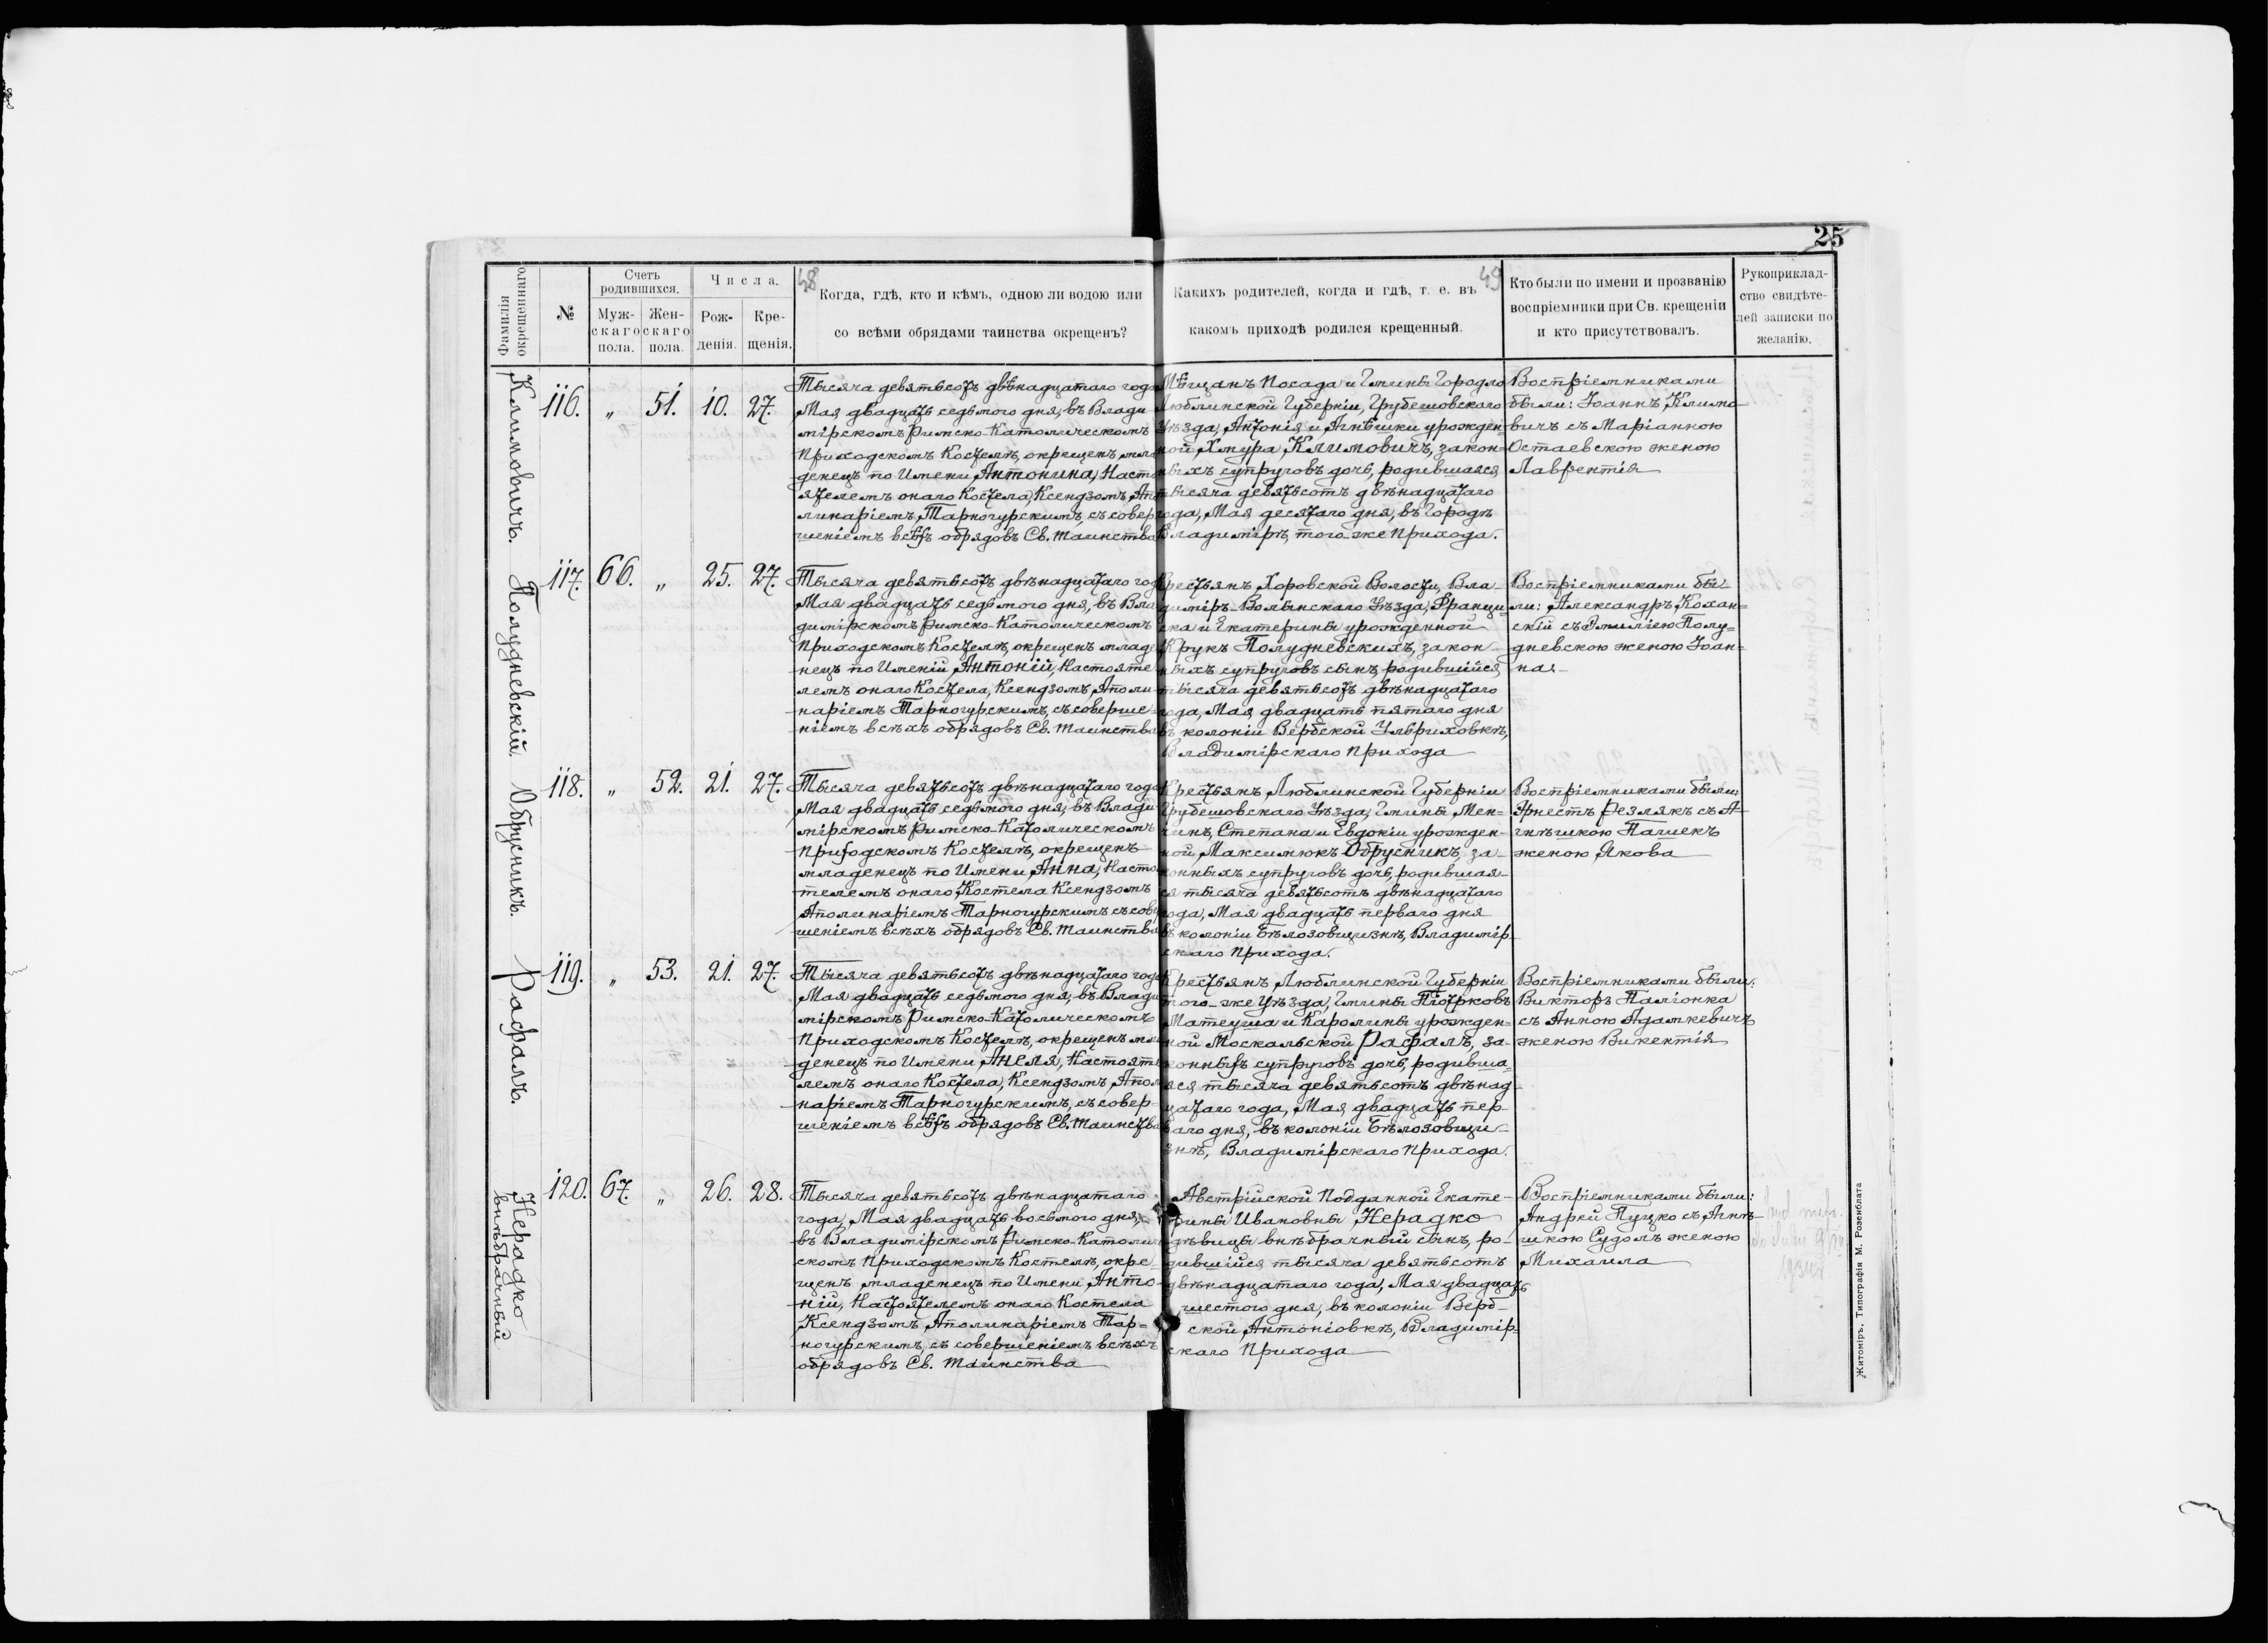 25
48
49
Фамилія окрещеннаго
№
Счетъ родившихся.
Мужскаго пола.
Женскаго пола.
Числа.
Рожденія.
Крещенія.
Когда, гдѣ, кто и кѣмъ, одною ли водою или
со всѣми обрядами таинства окрещенъ?
Какихъ родителей, когда и гдѣ, т. е. въ
какомъ приходѣ родился крещенный.
Кто были по имени и прозванію
воспріемники при Св. крещеніи
и кто присутствовалъ.
Рукоприклад-
ство свидѣте-
лей записки по
желанію.
Климовичъ.
116. „ 51. 10. 27.
Тысяча девятьсотъ двѣнадцатаго года
Мая двадцать седьмого дня, въ Влади-
мірскомъ Римско-Католическомъ
Приходскомъ Костелѣ, окрещенъ мла
денецъ по Имени Антонина, Насто
ятелемъ онаго Костела, Ксендзомъ Апо
линаріемъ Тарногурскимъ, съ совер
шеніемъ всѣхъ обрядовъ Св. Таинства
Мѣщанъ Посада и Гмины Городло
Люблинской Губерніи, Грубешовскаго
Уѣзда, Антонія и Агнѣшки урожден-
ной Хмура, Климовичъ, закон-
ныхъ супруговъ дочь, родившаяся
тысяча девятьсотъ двѣнадцатаго
года, Мая десятаго дня, въ Городѣ
Владимірѣ, того-же Прихода.
Воспріемниками
были: Іоаннъ Климо-
вичъ съ Маріанною
Остаевскою женою
Лаврентія
Полудневскій.
117. 66. „ 25. 27.
Тысяча девятьсотъ двѣнадцатаго год
Мая двадцать седьмого дня, въ Вла
димірскомъ Римско-Католическомъ
Приходскомъ Костелѣ, окрещенъ младе
нецъ по Имени Антоній, Настояте
лемъ онаго Костела, Ксендзомъ Аполи
наріемъ Тарногурскимъ, съ соверше-
ніемъ всѣхъ обрядовъ Св. Таинства
Крестьянъ Хоровской Волости, Вла-
диміръ-Волынскаго Уѣзда, Францис-
ка и Екатерины урожденной
Крукъ Полудневскихъ, закон-
ныхъ супруговъ сынъ, родившійся
тысяча девятьсотъ двѣнадцатаго
года, Мая двадцать пятаго дня
въ колоніи Вербской Ульриховкѣ,
Владимірскаго Прихода
Воспріемниками бы-
ли: Александръ Кохан-
скій съ Эмиліею Полу-
дневскою женою Іоан-
на
Обрусникъ.
118. „ 52. 21. 27.
Тысяча девятьсотъ двѣнадцатаго года
Мая двадцать седьмого дня, въ Влади
мірскомъ Римско-Католическомъ
Приходскомъ Костелѣ, окрещенъ
младенецъ по Имени Анна, Насто
телемъ онаго Костела Ксендзомъ
Аполинаріемъ Тарногурскимъ съ сове
шеніемъ всѣхъ обрядовъ Св. Таинства
Крестьянъ Люблинской Губерніи
Грубешовскаго Уѣзда, Гмины Мен-
чинъ, Степана и Евдокіи урожден-
ной Максимюкъ Обрусникъ, за-
конныхъ супруговъ дочь, родившая-
ся тысяча девятьсотъ двѣнадцатаго
года, Мая двадцать перваго дня
въ колоніи Бѣлозовщизнѣ, Владимір-
скаго Прихода.
Воспріемниками были:
Эрнестъ Резлякъ съ А-
гнѣшкою Пашекъ
женою Якова
Рафалъ.
119. „ 53. 21. 27.
Тысяча девятьсотъ двѣнадцатаго года
Мая двадцать седьмого дня, въ Влади
мірскомъ Римско-Католическомъ
Приходскомъ Костелѣ, окрещенъ мла
денецъ по Имени Анеля, Настояте
лемъ онаго Костела, Ксендзомъ Апол
наріемъ Тарногурскимъ, съ совер-
шеніемъ всѣхъ обрядовъ Св. Таинства
Крестьянъ Люблинской Губерніи
того-же Уѣзда, Гмины Піотрковъ
Матеуша и Каролины урожден-
ной Москальской Рафалъ, за-
конныхъ супруговъ дочь, родивша-
яся тысяча девятьсотъ двѣнад-
цатаго года, Мая двадцать пер-
ваго дня, въ колоніи Бѣлозовщи-
знѣ, Владимірскаго Прихода.
Воспріемниками были:
Викторъ Паліонка
съ Анною Адамкевичъ
женою Викентія
Нерадко
внѣбрачный
120. 67. „ 26. 28.
Тысяча девятьсотъ двѣнадцатаго
года, Мая двадцать восьмого дня,
въ Владимірскомъ Римско-Католич
скомъ Приходскомъ Костелѣ, окре-
щенъ младенецъ по Имени Анто-
ній, Настоятелемъ онаго Костела
Ксендзомъ Аполинаріемъ Тар-
ногурскимъ, съ совершеніемъ всѣхъ
обрядовъ Св. Таинства
Австрійской Подданной Екате-
рины Ивановны Нерадко
дѣвицы внѣбрачный сынъ, ро-
дившійся тысяча девятьсотъ
двѣнадцатаго года, Мая двадцать
шестого дня, въ колоніи Верб-
ской Антоніовкѣ, Владимір-
скаго Прихода
Воспріемниками были:
Андрей Пуцко съ Агнѣ-
шкою Судолъ женою
Михаила
Житоміръ, Типографія М. Розенблата